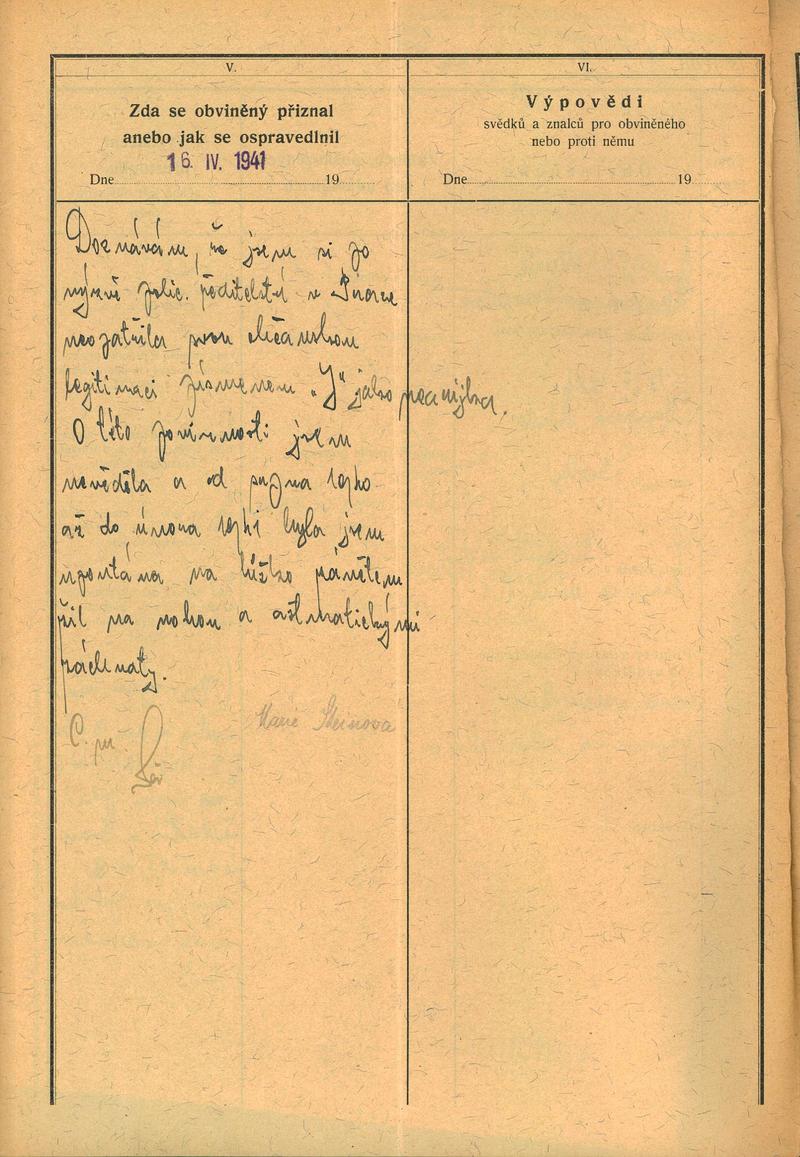 V.
Zda se obviněný přiznal
anebo jak se ospravedlnil
16. IV. 1941
Dne 19
VI.
Výpovědi
svědků a znalců pro obviněného
nebo proti němu
Dne 19
Doznávám, že jsem si po
výzvě polic. ředitelství v Praze
neopatřila svou občanskou
legitimaci písmenem „J“ jako
O této povinnosti jsem
nevěděla a od srpna 1940
až do února 1941 byla jsem
upoutána na lůžko zánětem
žil na nohou a astmatickými
záchvaty.
Marie Steinová